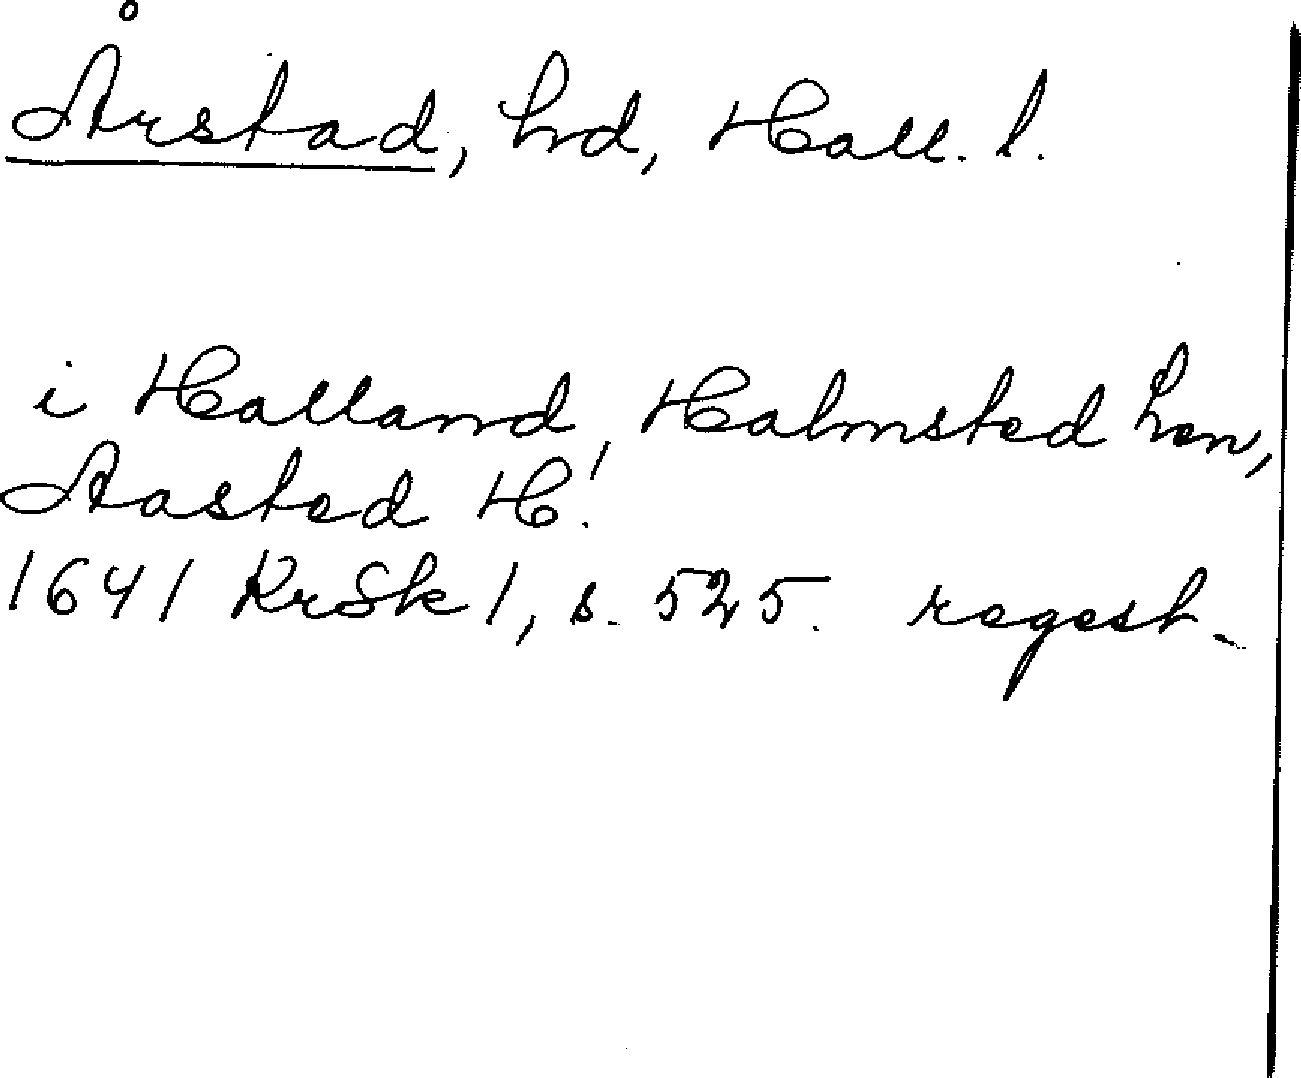 Årstad, hd, Hall. l.
i Halland, Halmsted Len,
Aasted H!
1641 KrSk 1, s. 525. regest.